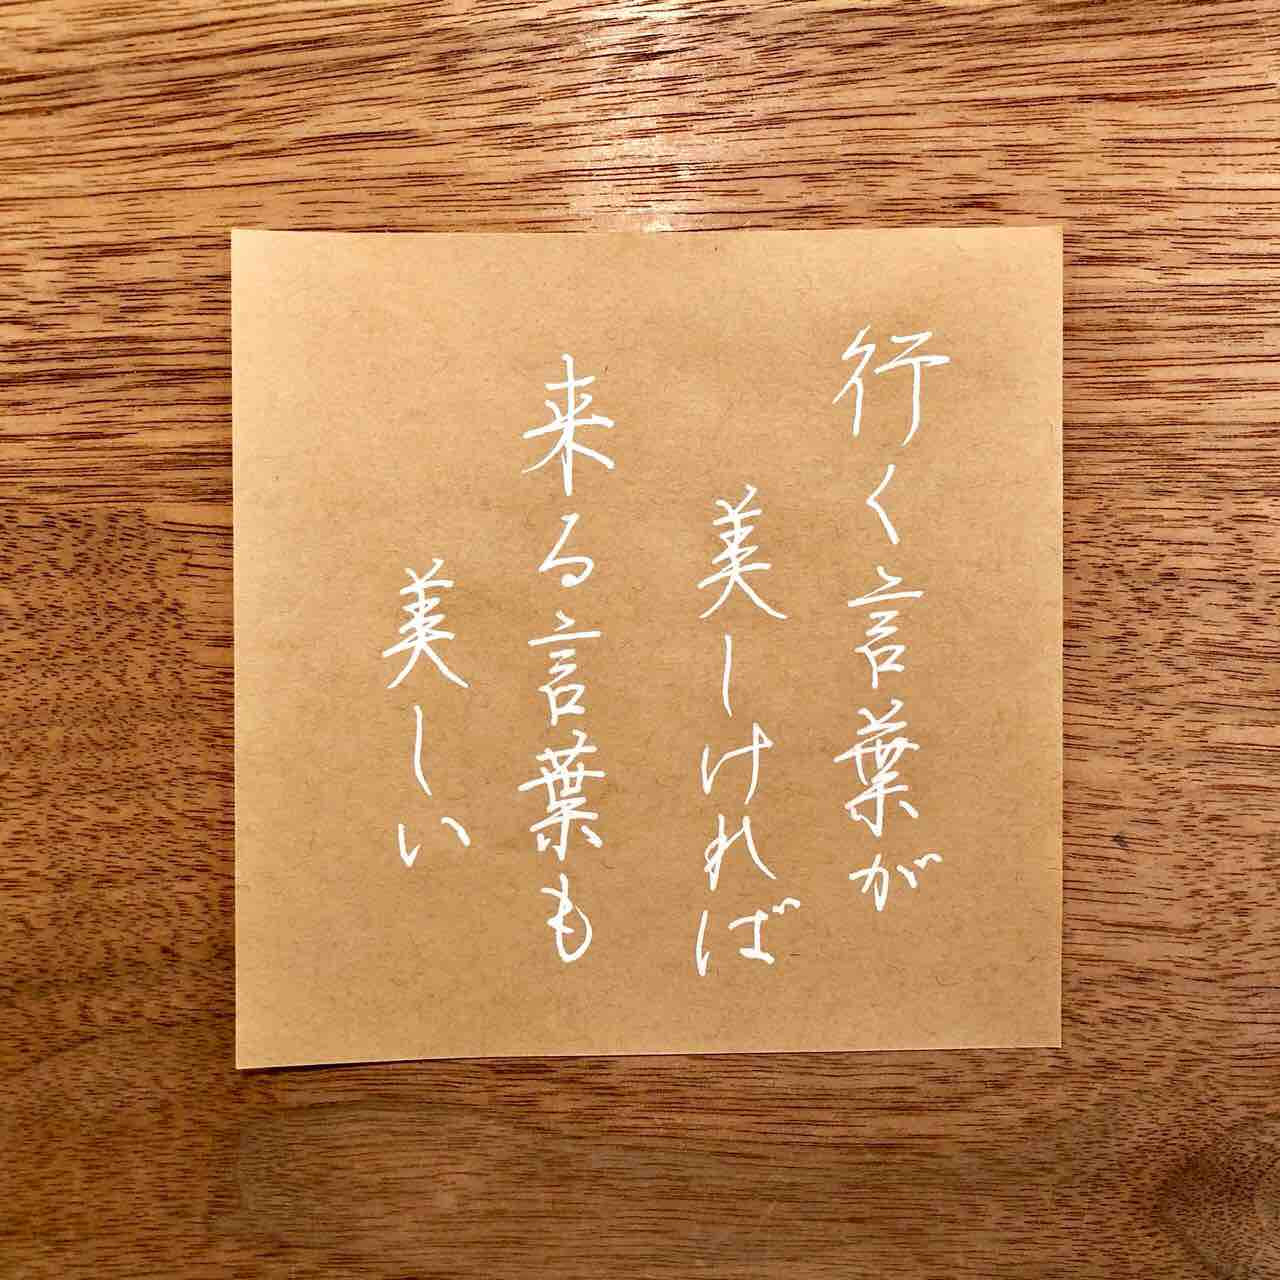 行く言葉が
美しければ
来る言葉も
美しい